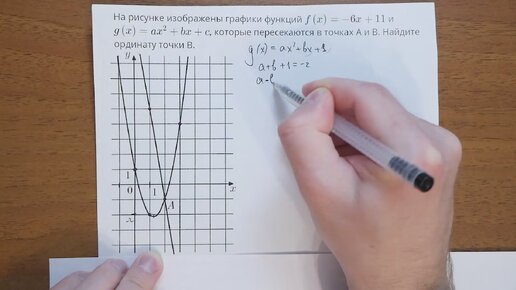 На рисунке изображены графики функций f(x) = −6x + 11 и
g(x) = ax² + bx + c, которые пересекаются в точках A и B. Найдите
ординату точки B.
g(x) = ax²+bx+1
a+b+1=-2
a-b
y
1
0
1
x
A